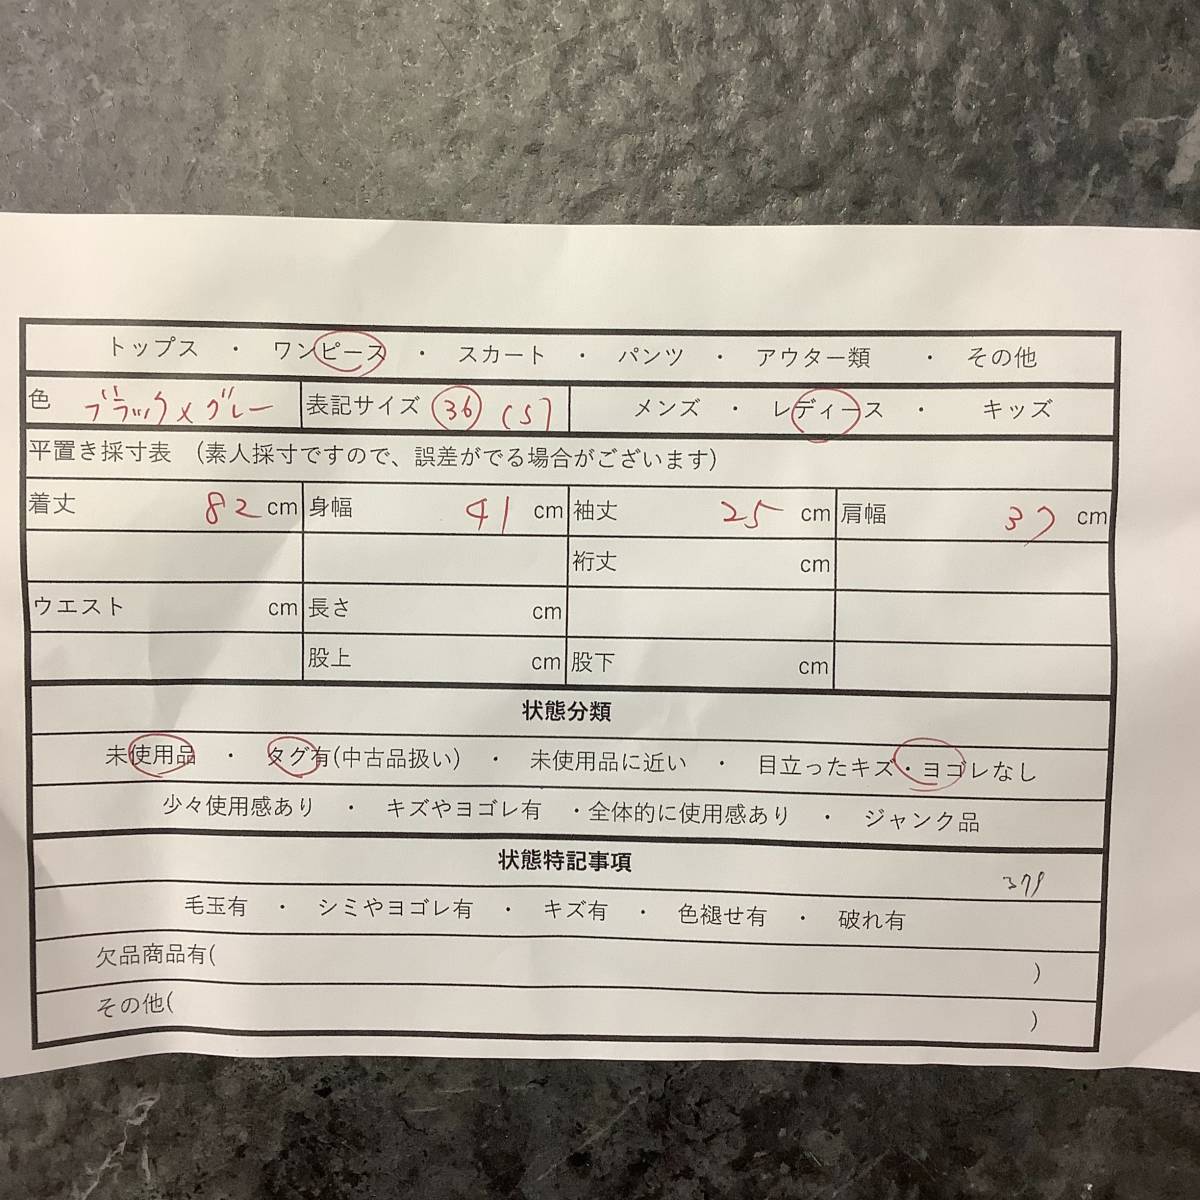 トップス ・ ワンピース ・ スカート ・ パンツ ・ アウター類 ・ その他
色 ブラック×グレー 表記サイズ 36 (S) メンズ ・ レディース ・ キッズ
平置き採寸表 (素人採寸ですので、誤差がでる場合がございます)
着丈 82 cm 身幅 41 cm 袖丈 25 cm 肩幅 37 cm
裄丈 cm
ウエスト cm 長さ cm
股上 cm 股下 cm
状態分類
未使用品 ・ タグ有(中古品扱い) ・ 未使用品に近い ・ 目立ったキズ・ヨゴレなし
少々使用感あり ・ キズやヨゴレ有 ・全体的に使用感あり ・ ジャンク品
状態特記事項
379
毛玉有 ・ シミやヨゴレ有 ・ キズ有 ・ 色褪せ有 ・ 破れ有
欠品商品有( )
その他( )